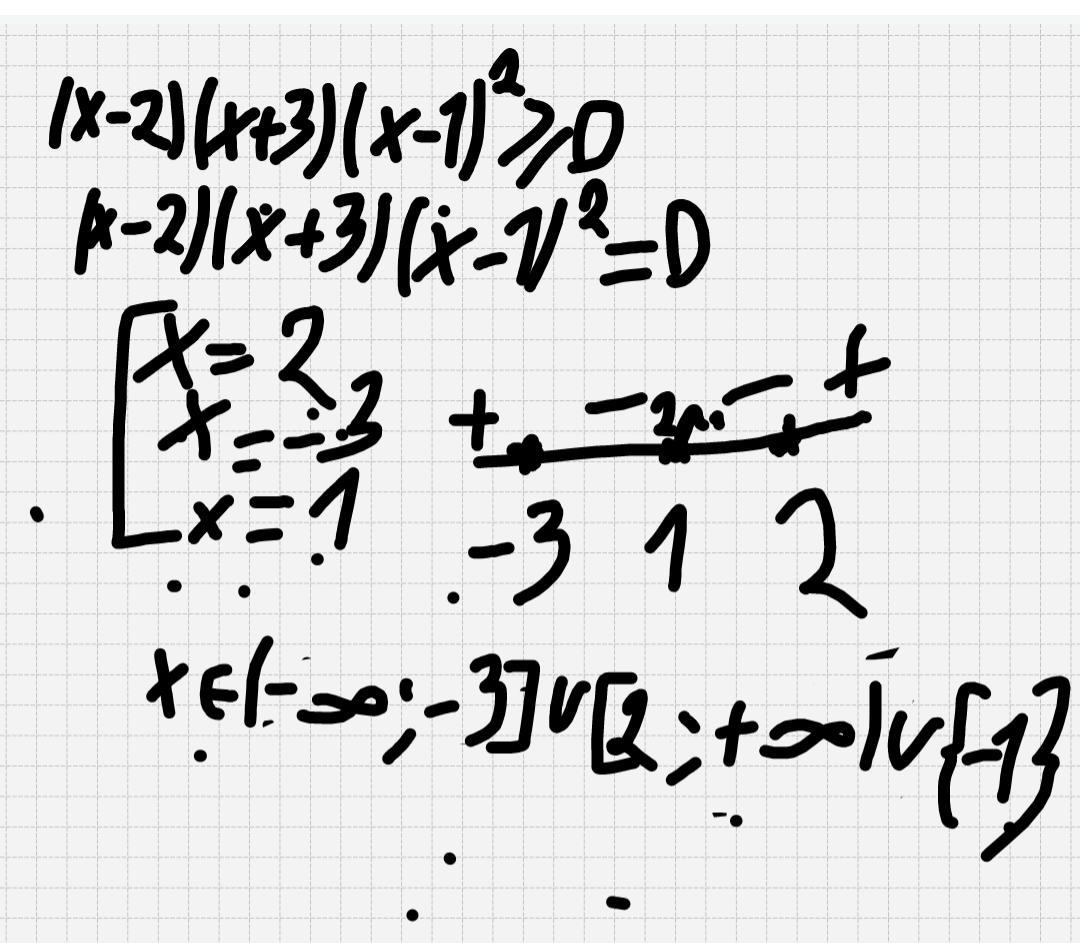 (x-2)(x+3)(x-1)²⩾0
(x-2)(x+3)(x-1)²=0
x=2
x=-3
x=1
+ - 2к. - +
-3 1 2
x∈(-∞;-3]∪[2;+∞)∪{-1}